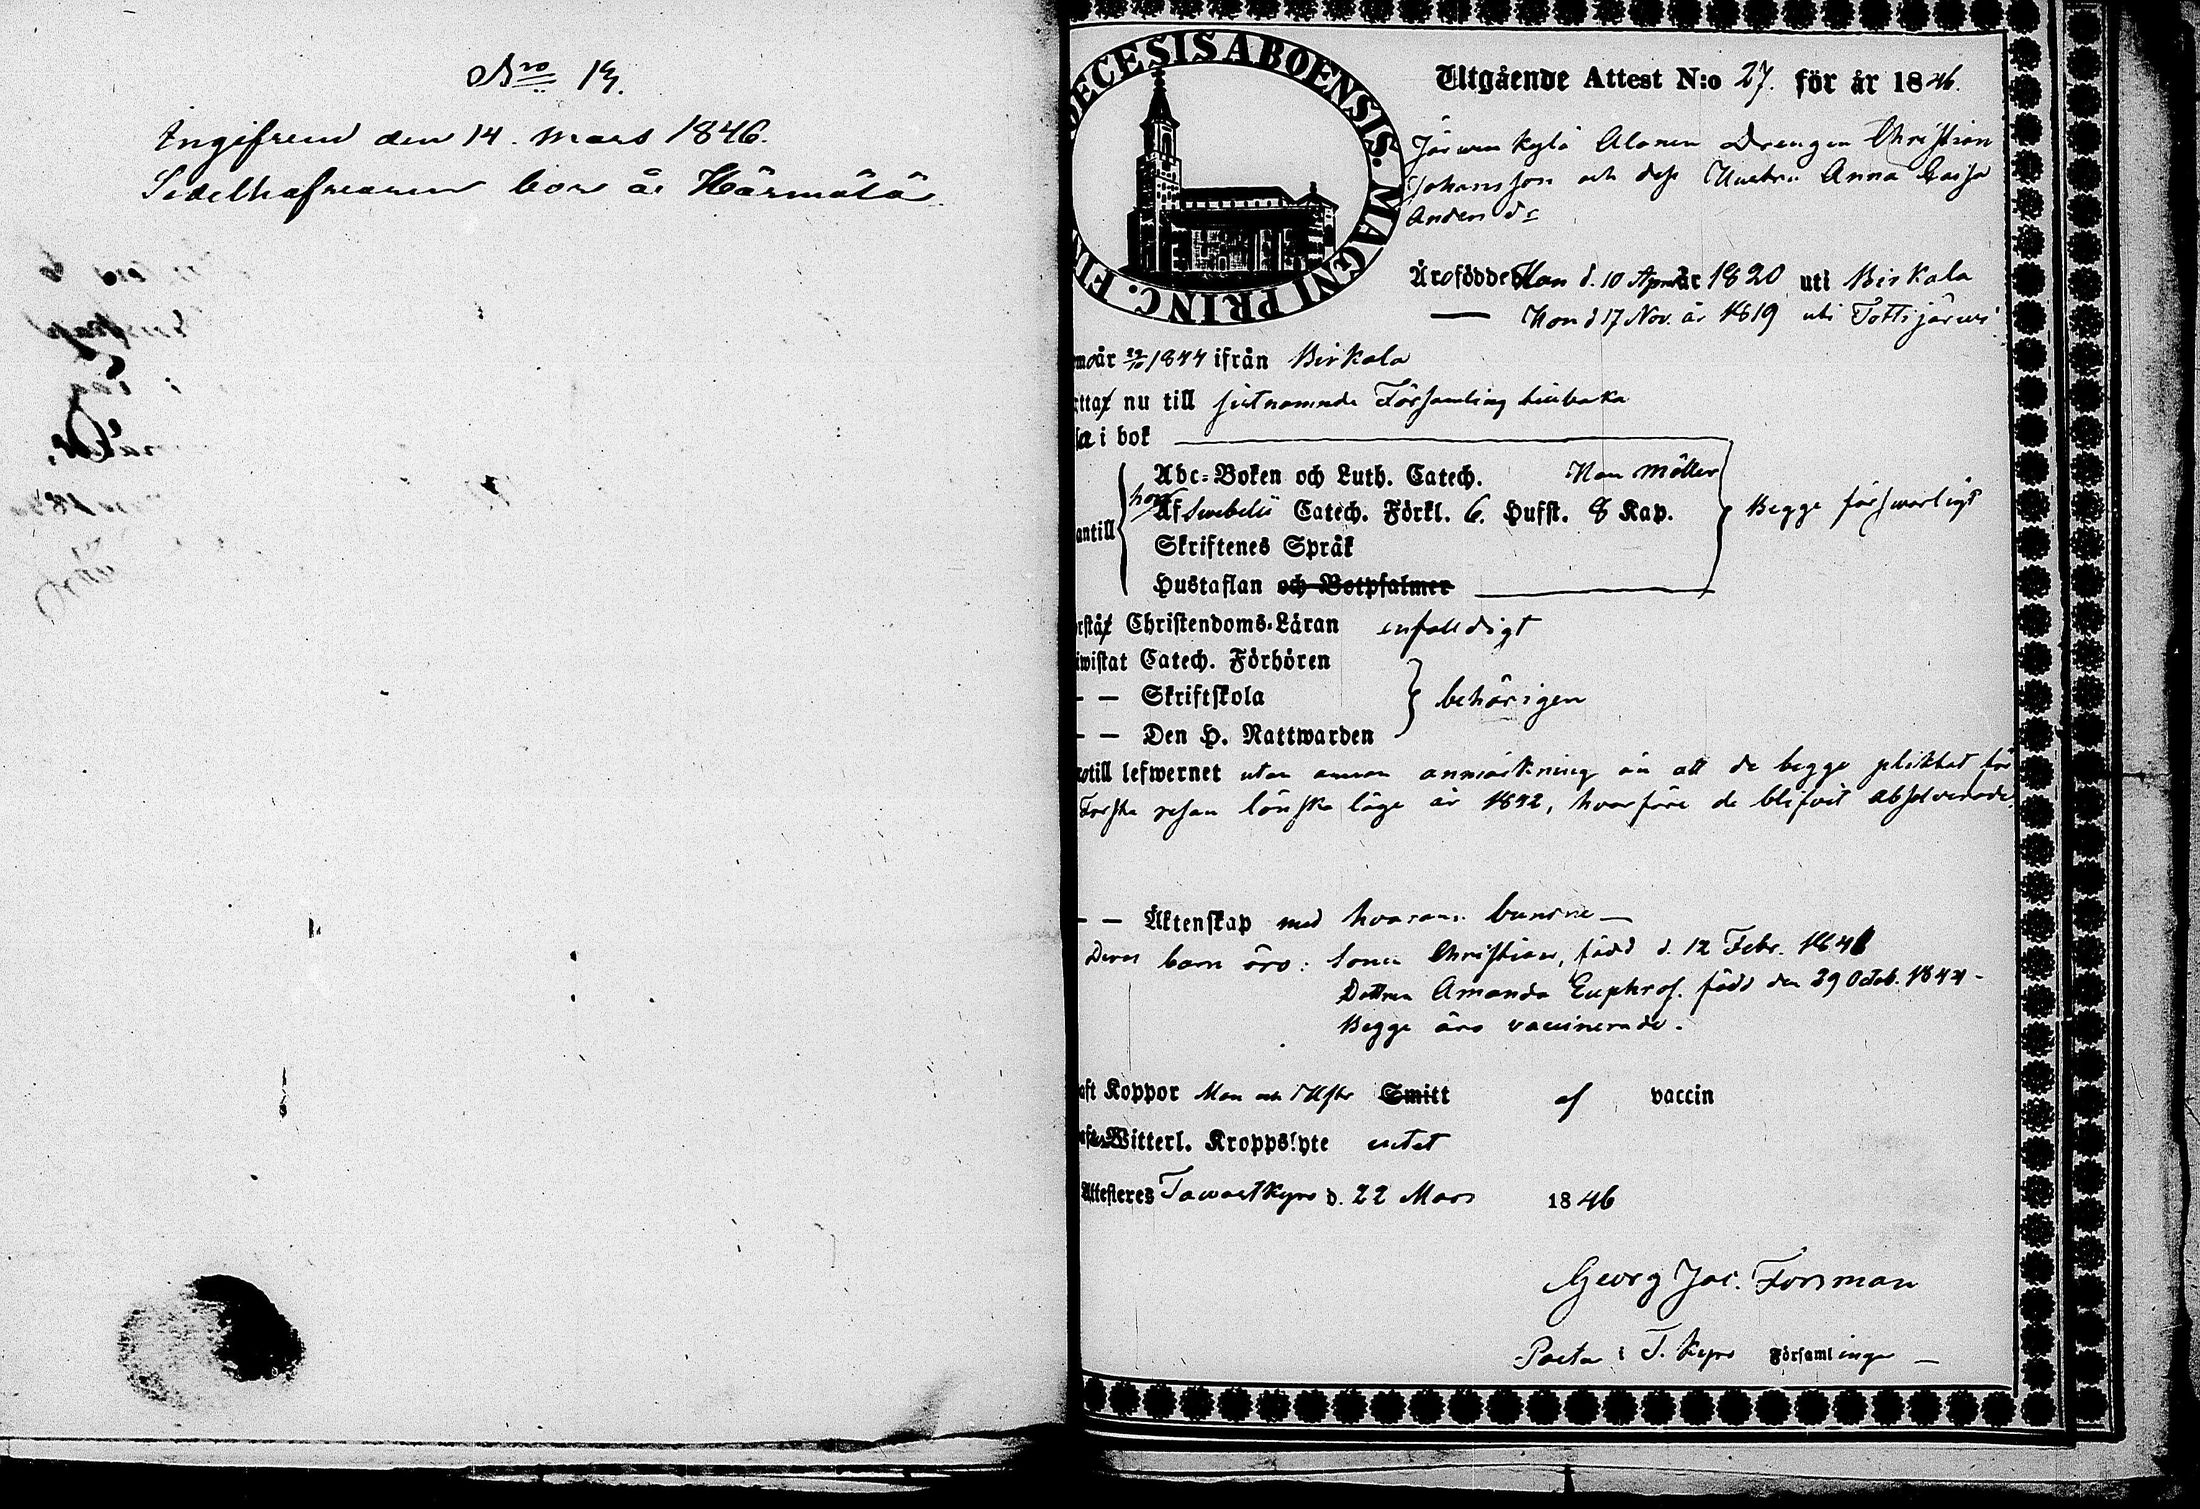 N:ro 13.
Ingifven den 14. Mars 1846.
Sedelhafvaren bor å Härmälä
DECESIS ABOENSIS. MAGNI PRINC. FIN
Utgående Attest N:o 27. för år 1846.
Järwenkylä Alanen Drengen Christian
Johansson och dess Hustru Anna Caisa
Anders dr
Äro födde Han d. 10 Apr. år 1820 uti Birkala
— Hon d 17 Nov. år 1819 uti Tottijärwi
år 22/10 1844 ifrån Birkala
nu till sistnamnde Församling tillbaka
i bok
Abc-Boken och Luth. Catech. Han
hon Af Swebelii Catech. Förkl. 6. Hufst. 8 Kap. Begge förswarligt
antill
Skriftenes Språk
Hustaflan och Botpsalmer
Christendoms-Läran enfalldigt
wistat Catech. Förhören
— — Skriftskola behörigen
— — Den H. Nattwarden
till lefwernet utan annan anmärkning än att de begge pliktat för
Första resan lönskaläge år 1842, hvarföre de blifvit absolverade.
— — Äktenskap med hvarann bundne —
Deras barn äro: Sonen Christian, född d. 12 Febr. 184
Dottren Amanda Euphros. född den 29 Octob. 1844 -
Begge äro vaccinerade.
haft Koppor Man och Hustr Smitt af vaccin
Witterl. Kroppslyte intet
Attesteres Tawastkyro d. 22 Mars 1846
Georg Jac. Forsman
Pastor i T. Kyro Församlingar —